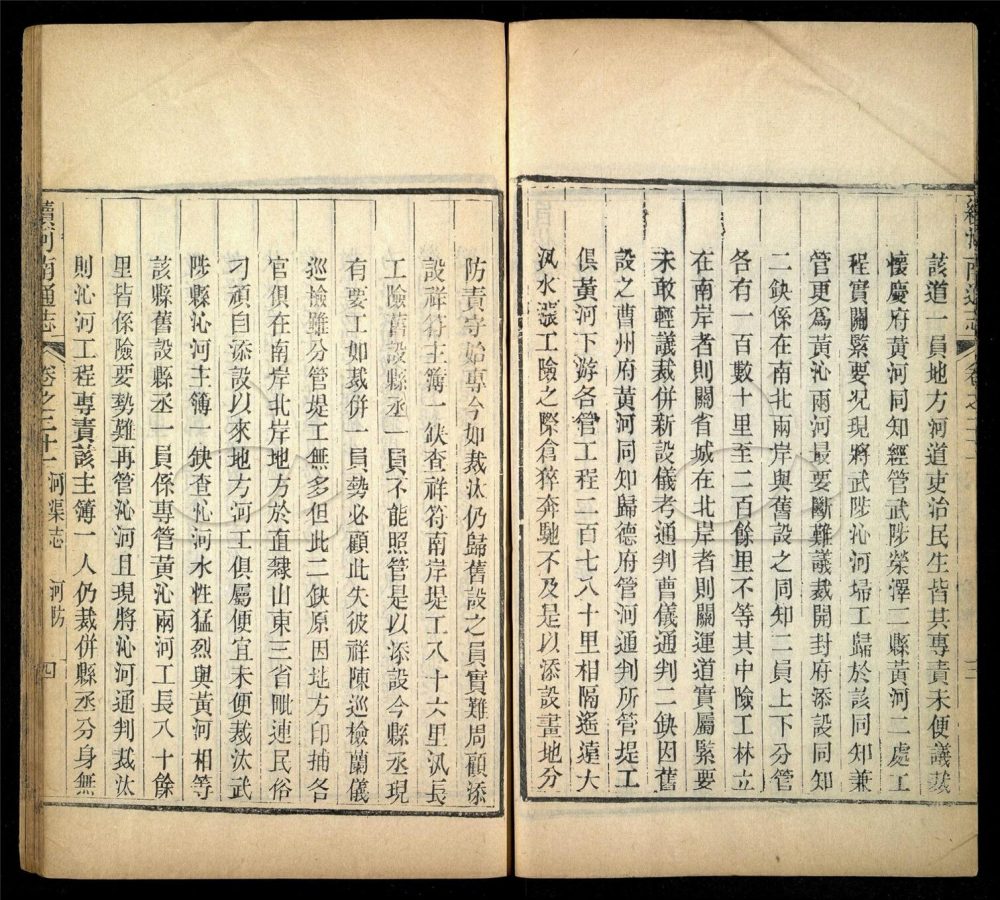 續河南通志 卷之二十一 三
該道一員地方河道吏治民生皆其專責未便議裁
懷慶府黃河同知經管武陟滎澤二縣黃河二處工
程實關緊要況現將武陟沁河埽工歸於該同知兼
管更爲黃沁兩河最要斷難議裁開封府添設同知
二缺係在南北兩岸與舊設之同知二員上下分管
各有一百數十里至二百餘里不等其中險工林立
在南岸者則關省城在北岸者則關運道實屬緊要
未敢輕議裁併新設儀考通判曹儀通判二缺因舊
設之曹州府黃河同知歸德府管河通判所管堤工
俱黃河下游各管工程二百七八十里相隔遙遠大
汛水漲工險之際倉猝奔馳不及是以添設畫地分
防責守始專今如裁汰仍歸舊設之員實難周顧添
設祥符主簿一缺查祥符南岸堤工八十六里汛長
工險舊設縣丞一員不能照管是以添設今縣丞現
有要工如裁併一員勢必顧此失彼祥陳巡檢蘭儀
巡檢雖分管堤工無多但此二缺原因地方印捕各
官俱在南岸北岸地方於直隸山東三省毗連民俗
刁頑自添設以來地方河工俱屬便宜未便裁汰武
陟縣沁河主簿一缺查沁河水性猛烈與黃河相等
該縣舊設縣丞一員係專管黃沁兩河工長八十餘
里皆係險要勢難再管沁河且現將沁河通判裁汰
則沁河工程專責該主簿一人仍裁併縣丞分身無
續河南通志 卷之二十一 河渠志 河防 四